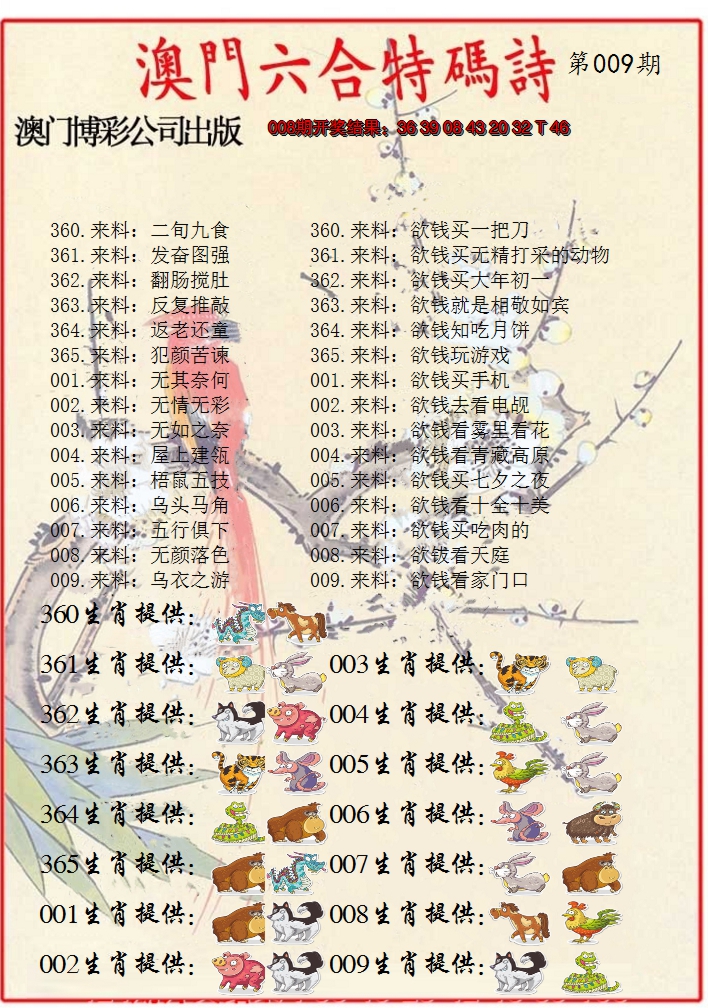 澳門六合特碼詩 第009期
澳门博彩公司出版 008期开奖结果：36 39 08 43 20 32 T 46
360.来料：二旬九食 360.来料：欲钱买一把刀
361.来料：发奋图强 361.来料：欲钱买无精打采的动物
362.来料：翻肠搅肚 362.来料：欲钱买大年初一
363.来料：反复推敲 363.来料：欲钱就是相敬如宾
364.来料：返老还童 364.来料：欲钱知吃月饼
365.来料：犯颜苦谏 365.来料：欲钱玩游戏
001.来料：无其奈何 001.来料：欲钱买手机
002.来料：无情无彩 002.来料：欲钱去看电觇
003.来料：无如之奈 003.来料：欲钱看雾里看花
004.来料：屋上建瓴 004.来料：欲钱看青藏高原
005.来料：梧鼠五技 005.来料：欲钱买七夕之夜
006.来料：乌头马角 006.来料：欲钱看十全十美
007.来料：五行俱下 007.来料：欲钱买吃肉的
008.来料：无颜落色 008.来料：欲钹看天庭
009.来料：乌衣之游 009.来料：欲钱看家门口
360生肖提供：
361生肖提供： 003生肖提供：
362生肖提供： 004生肖提供：
363生肖提供： 005生肖提供：
364生肖提供： 006生肖提供：
365生肖提供： 007生肖提供：
001生肖提供： 008生肖提供：
002生肖提供： 009生肖提供：